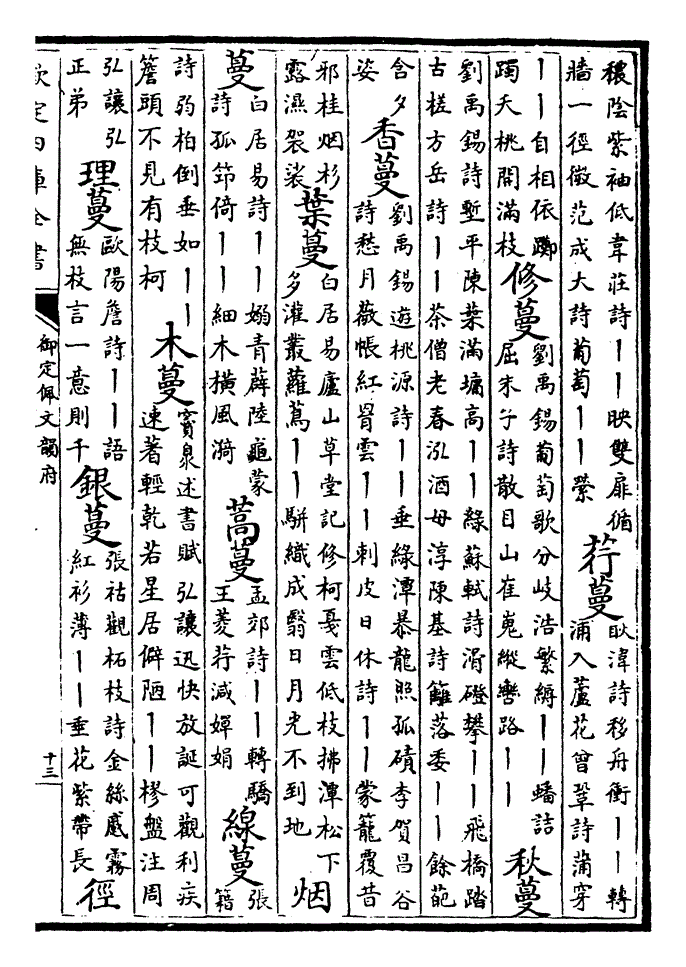 穠陰紫袖低韋莊詩丨丨映雙扉循
牆一徑微范成大詩葡萄丨丨縈
荇蔓
耿湋詩移舟衝丨丨轉
浦入蘆花曾鞏詩蒲穿
丨丨自相依躑
躅夭桃開滿枝
修蔓
劉禹錫葡萄歌分岐浩繁縟丨丨蟠詰
屈朱子詩散目山崔嵬縱轡路丨丨
秋蔓
劉禹錫詩塹平陳葉滿墉高丨丨綠蘇軾詩滑磴攀丨丨飛橋踏
古槎方岳詩丨丨茶僧老春泓酒母淳陳基詩籬落委丨丨餘葩
含夕
姿
香蔓
劉禹錫遊桃源詩丨丨垂綠潭暴龍照孤磧李賀昌谷
詩愁月薇帳紅罥雲丨丨刺皮日休詩丨丨蒙籠覆昔
邪桂烟杉
露濕袈裟
葉蔓
白居易廬山草堂記修柯戞雲低枝拂潭松下
多灌叢蘿蔦丨丨駢織成翳日月光不到地
烟
蔓
白居易詩丨丨嫋青薜陸龜蒙
詩孤筇倚丨丨細木橫風漪
蒿蔓
孟郊詩丨丨轉驕
王菱荇減嬋娟
線蔓
張
籍
詩弱柏倒垂如丨丨
簷頭不見有枝柯
木蔓
竇泉述書賦弘讓迅快放誕可觀利疾
速著輕乾若星居僻陋丨丨樛盤注周
弘讓弘
正弟
理蔓
歐陽詹詩丨丨語
無枝言一意則千
銀蔓
張祜觀柘枝詩金絲蹙霧
紅衫薄丨丨垂花紫帶長
徑
欽定四庫全書
御定佩文韻府
十三